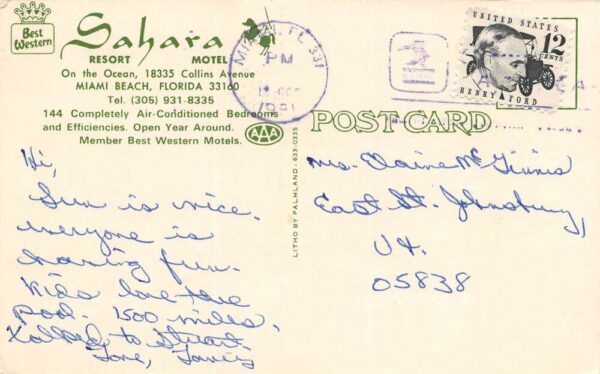 Best Western
Sahara
RESORT MOTEL
On the Ocean, 18335 Collins Avenue
MIAMI BEACH, FLORIDA 33160
Tel. (305) 931-8335
144 Completely Air-Conditioned Bedrooms
and Efficiencies. Open Year Around.
Member Best Western Motels.
AAA
MIAMI, FL 331
PM
1981
UNITED STATES
12
CENTS
HENRY FORD
POST CARD
LITHO BY PALMLAND - 633-0335
Hi,
Sun is nice.
everyone is
having fun.
Kids love the
pool. 1500 miles,
to Stuart.
Love,
Mrs. Elaine McGinnis
East St. Johnsbury,
Vt.
05838